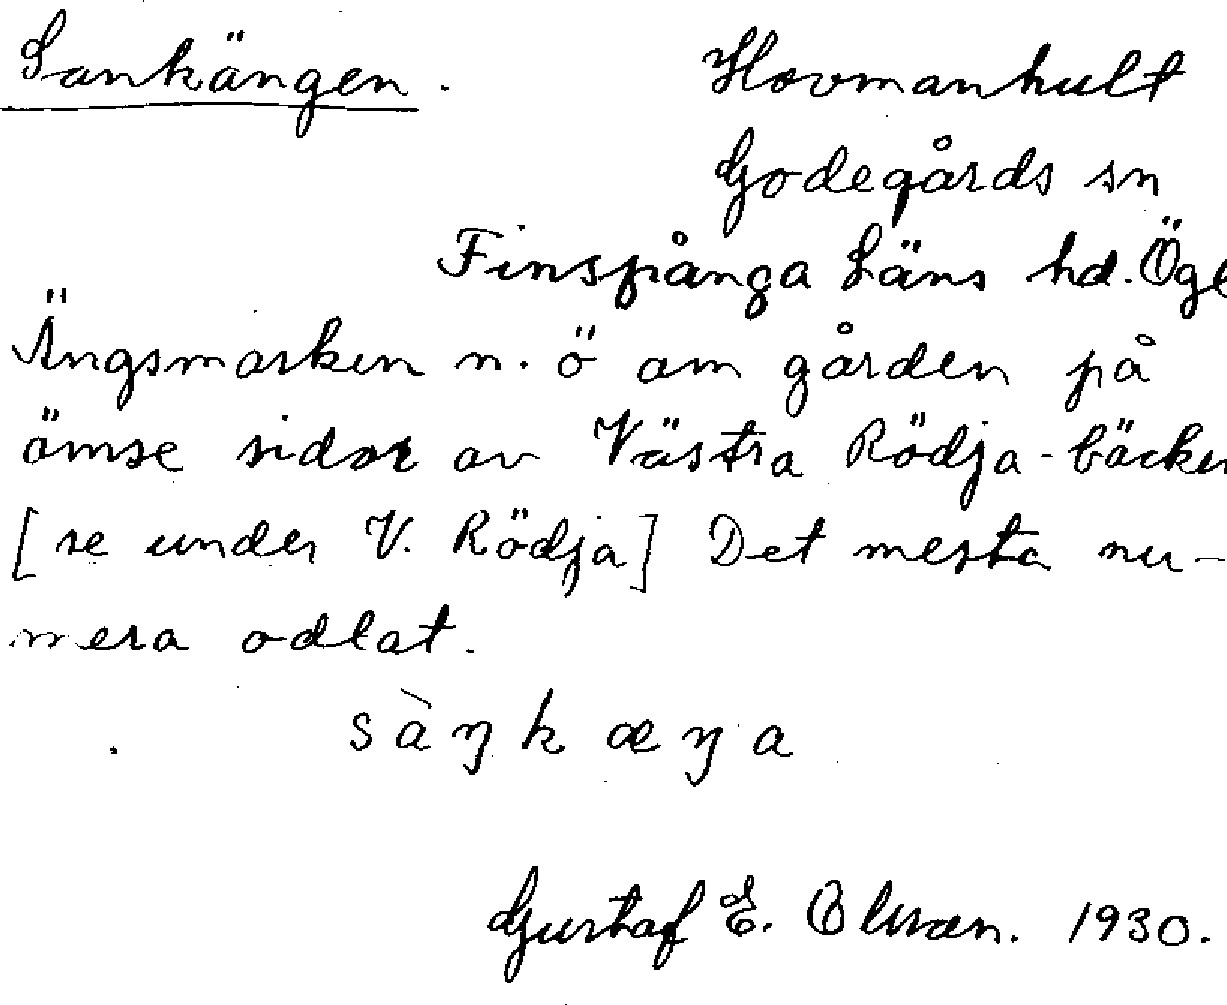 Sankängen.
Hovmanhult
Godegårds sn
Finspånga Läns hd. Ögl
Ängsmarken n. ö om gården på
ömse sidor av Västra Rödja-bäcken
[se under V. Rödja] Det mesta nu-
mera odlat.
sàŋkæŋa
Gustaf E. Olsson. 1930.